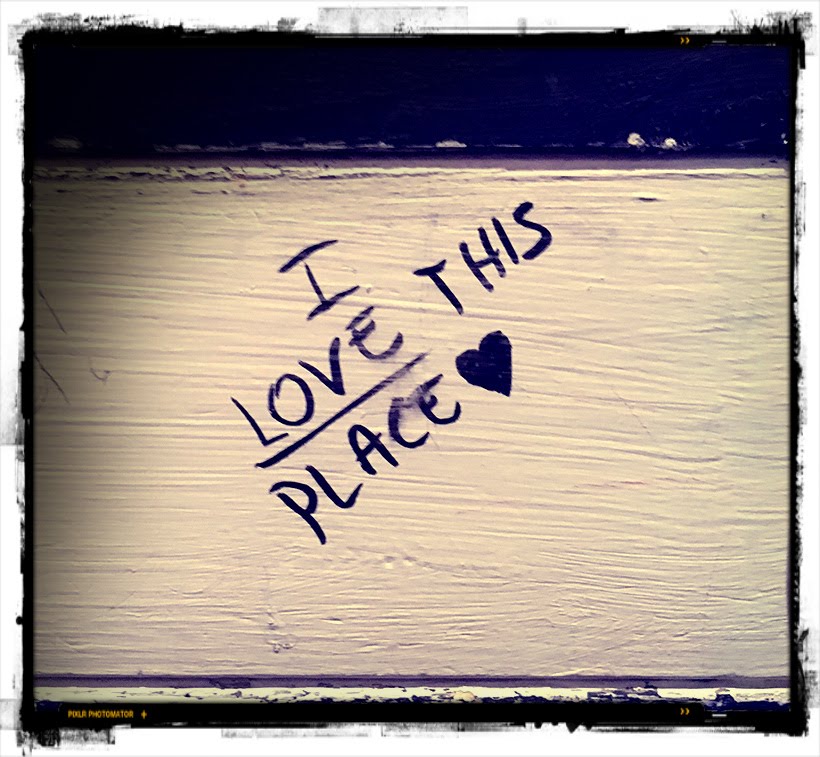 I
LOVE THIS
PLACE ♥
PIXLR PHOTOMATOR +